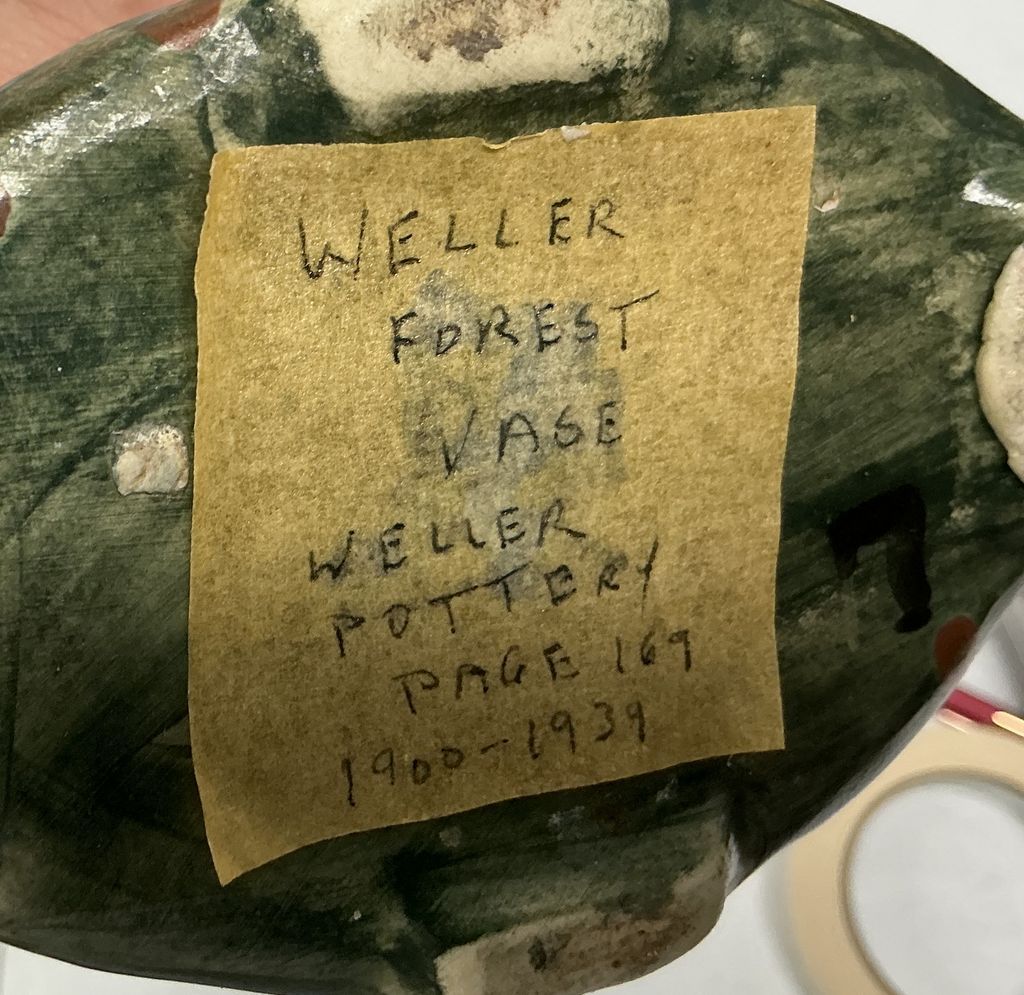 WELLER
FOREST
VASE
WELLER
POTTERY
PAGE 169
1900-1939
7